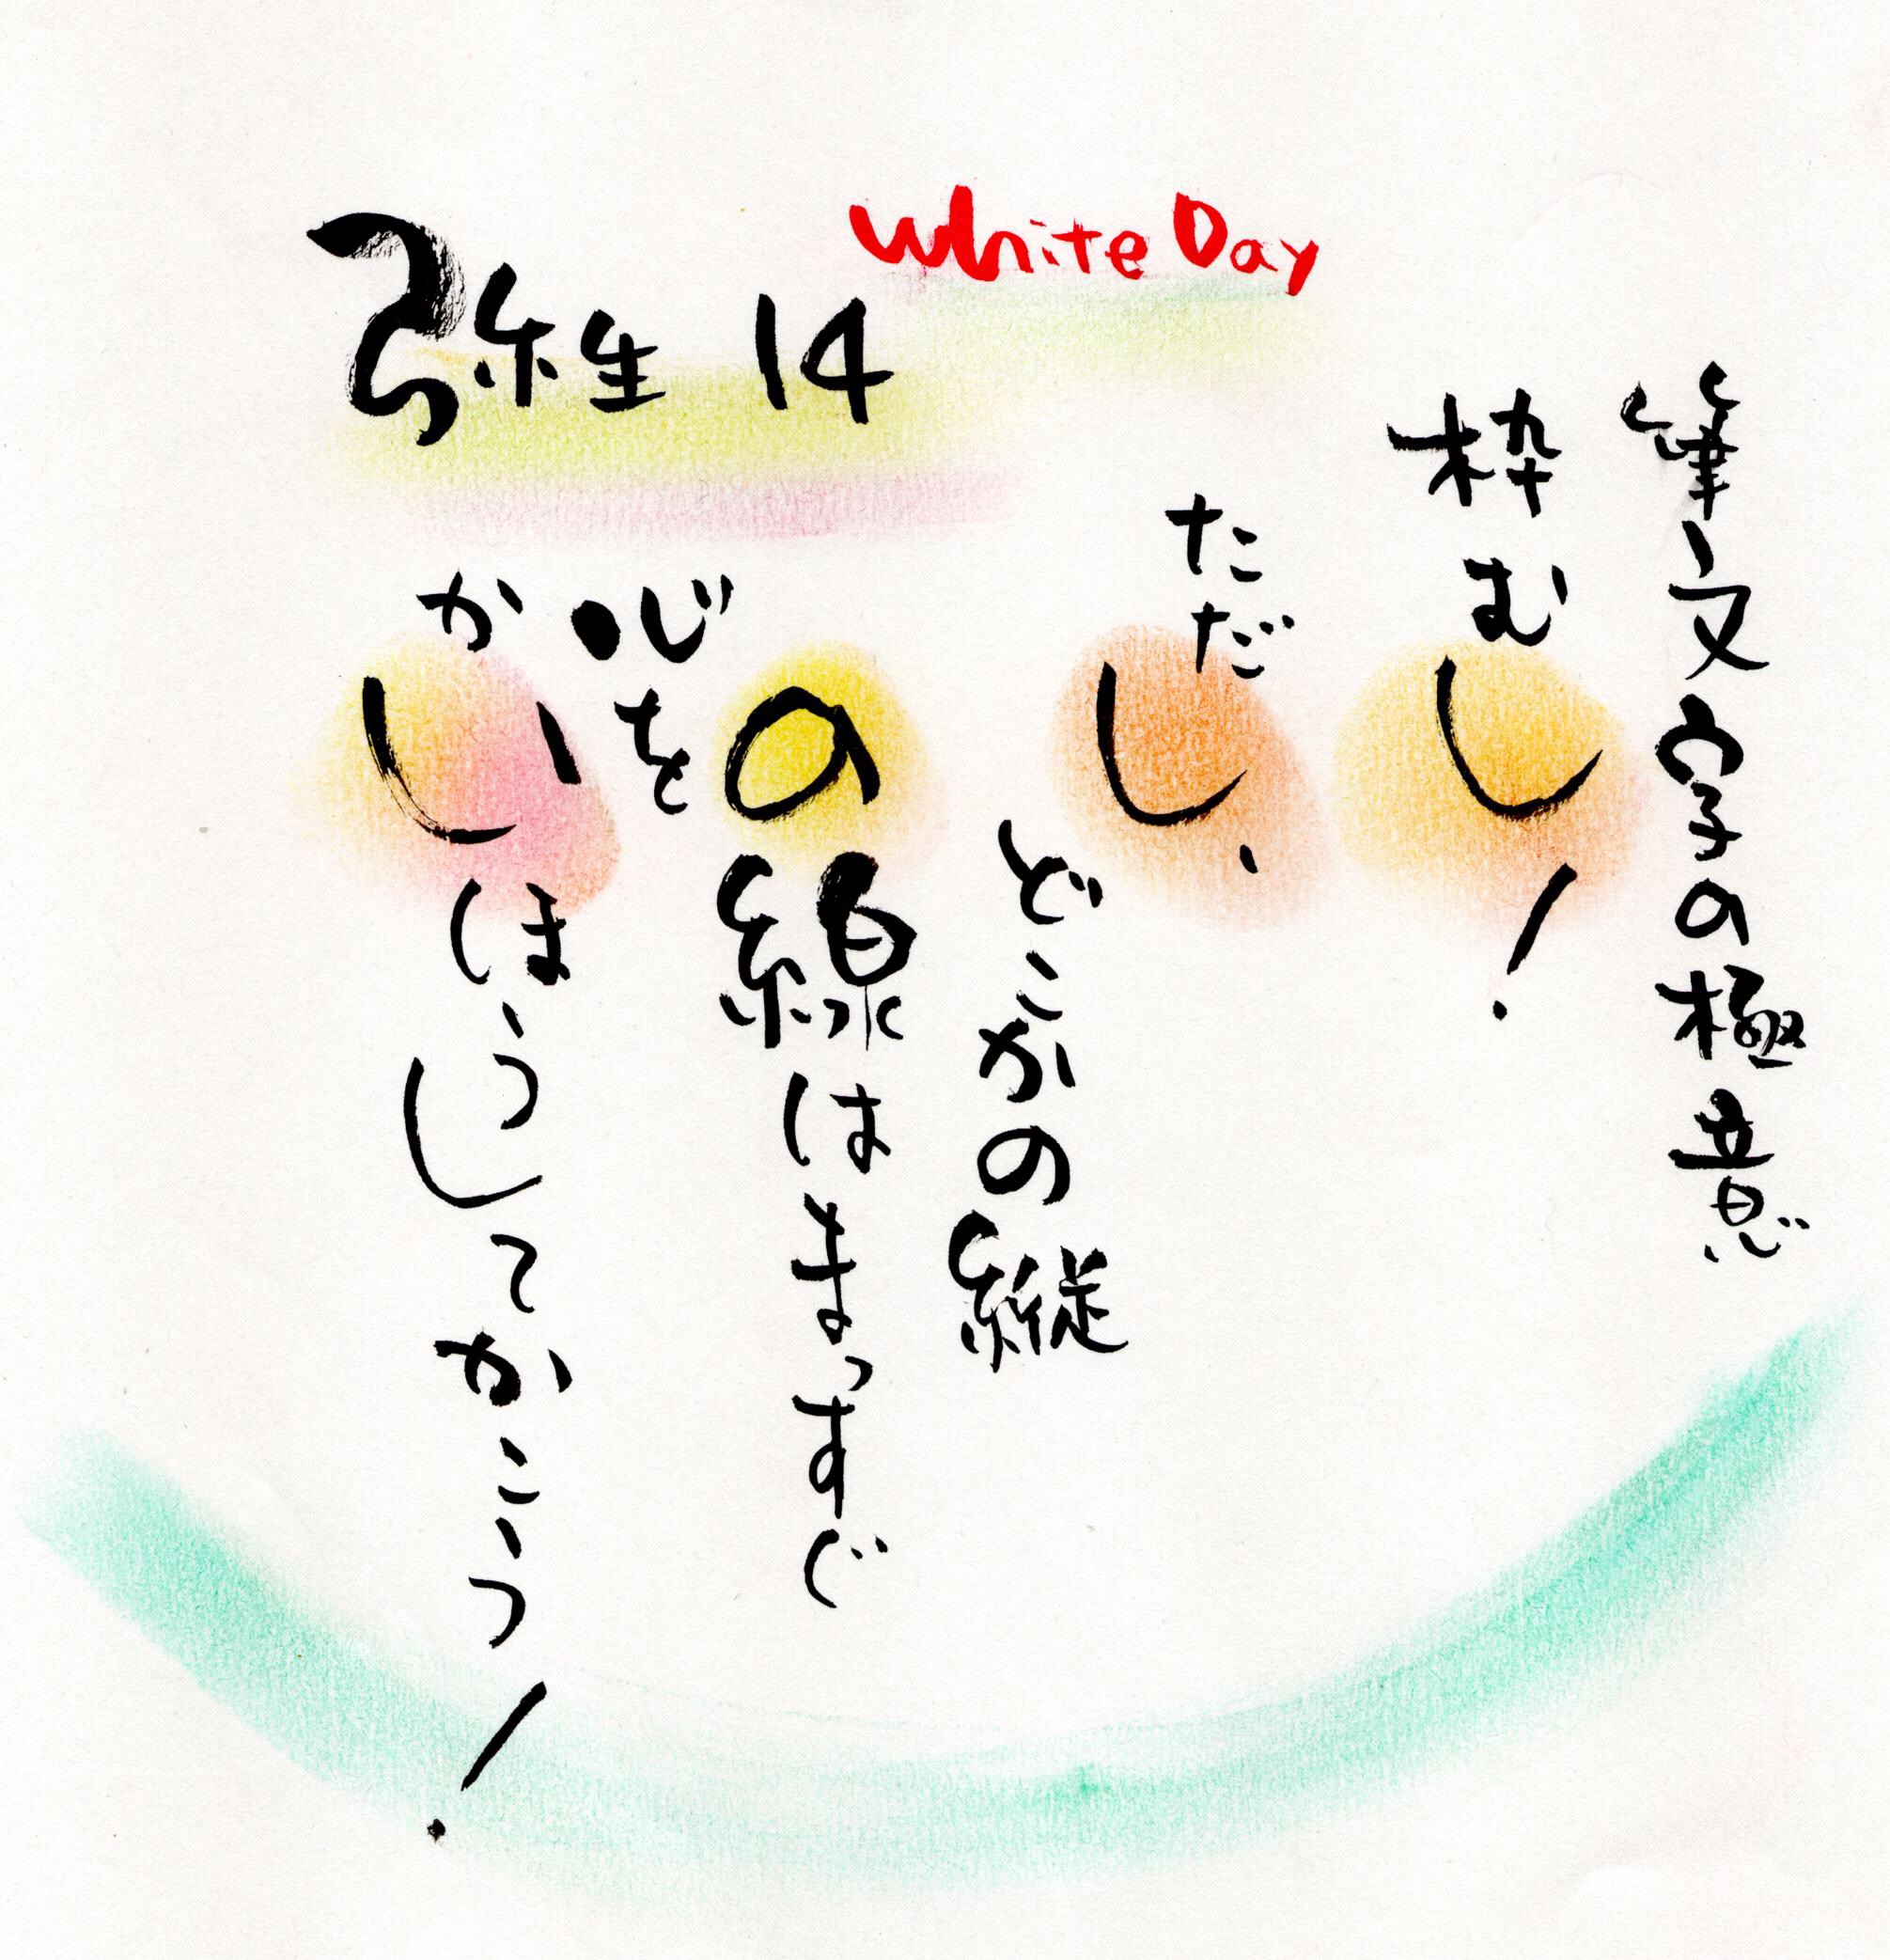 White Day
弥生 14
筆文字の極意
枠むし!
ただし、
どこかの縦
の線はまっすぐ
心を
かいほうしてかこう!